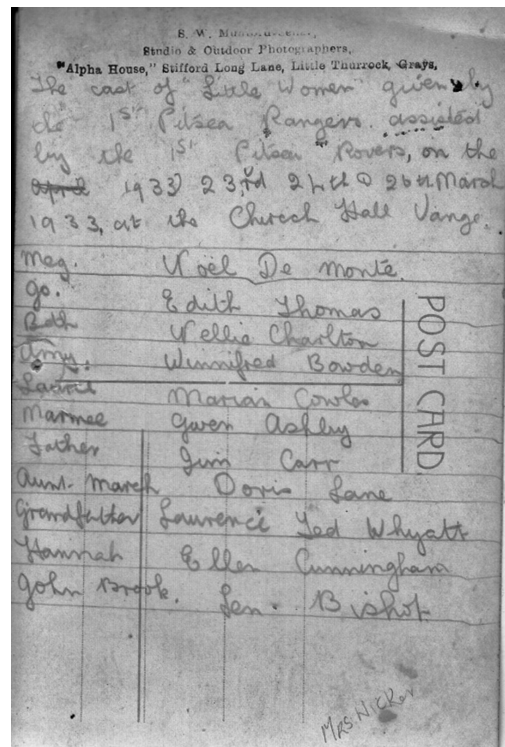 S. W.
Studio & Outdoor Photographers,
"Alpha House," Stifford Long Lane, Little Thurrock, Grays,
The cast of "Little Women" given by
the 1st Pitsea Rangers assisted
by the 1st Pitsea Rovers, on the
April 1933 23rd 24th & 26th March
1933, at the Church Hall Vange.
Meg. Noël De Monté.
Jo. Edith Thomas
Beth Nellie Charlton
Amy. Winnifred Bowden
Laurie Marian Cowles
Marmee Gwen Ashley
Father Jim Carr
Aunt. March Doris Lane
Grandfather Laurence Ted Whyatt
Hannah Ellen Cunningham
John Brook. Len. Bishop
POST CARD
MRS